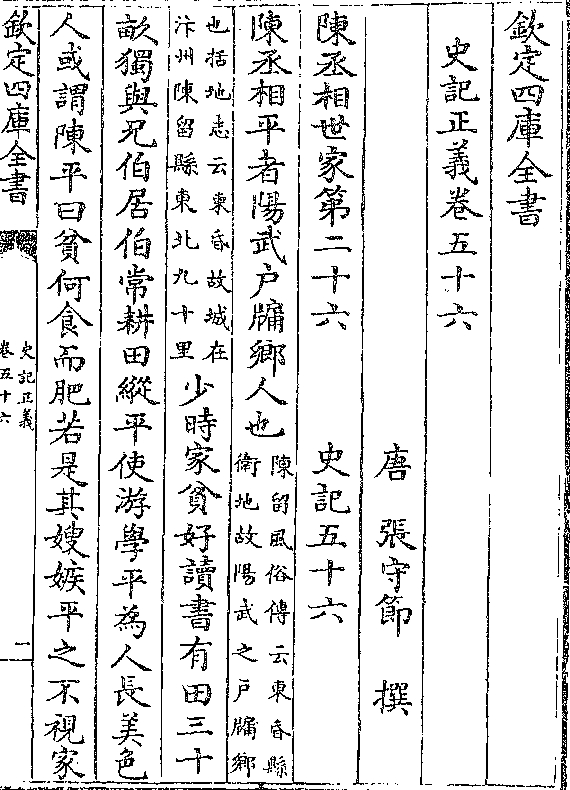 欽定四庫全書
史記正義卷五十六
唐 張守節 撰
陳丞相世家第二十六 史記五十六
陳丞相平者陽武户牖鄉人也陳留風俗傳云東昏縣
衛地故陽武之户牖鄉
也括地志云東昏故城在
汴州陳留縣東北九十里少時家貧好讀書有田三十
畝獨與兄伯居伯常耕田縱平使游學平為人長美色
人或謂陳平曰貧何食而肥若是其嫂嫉平之不視家
欽定四庫全書
史記正義
卷五十六
一